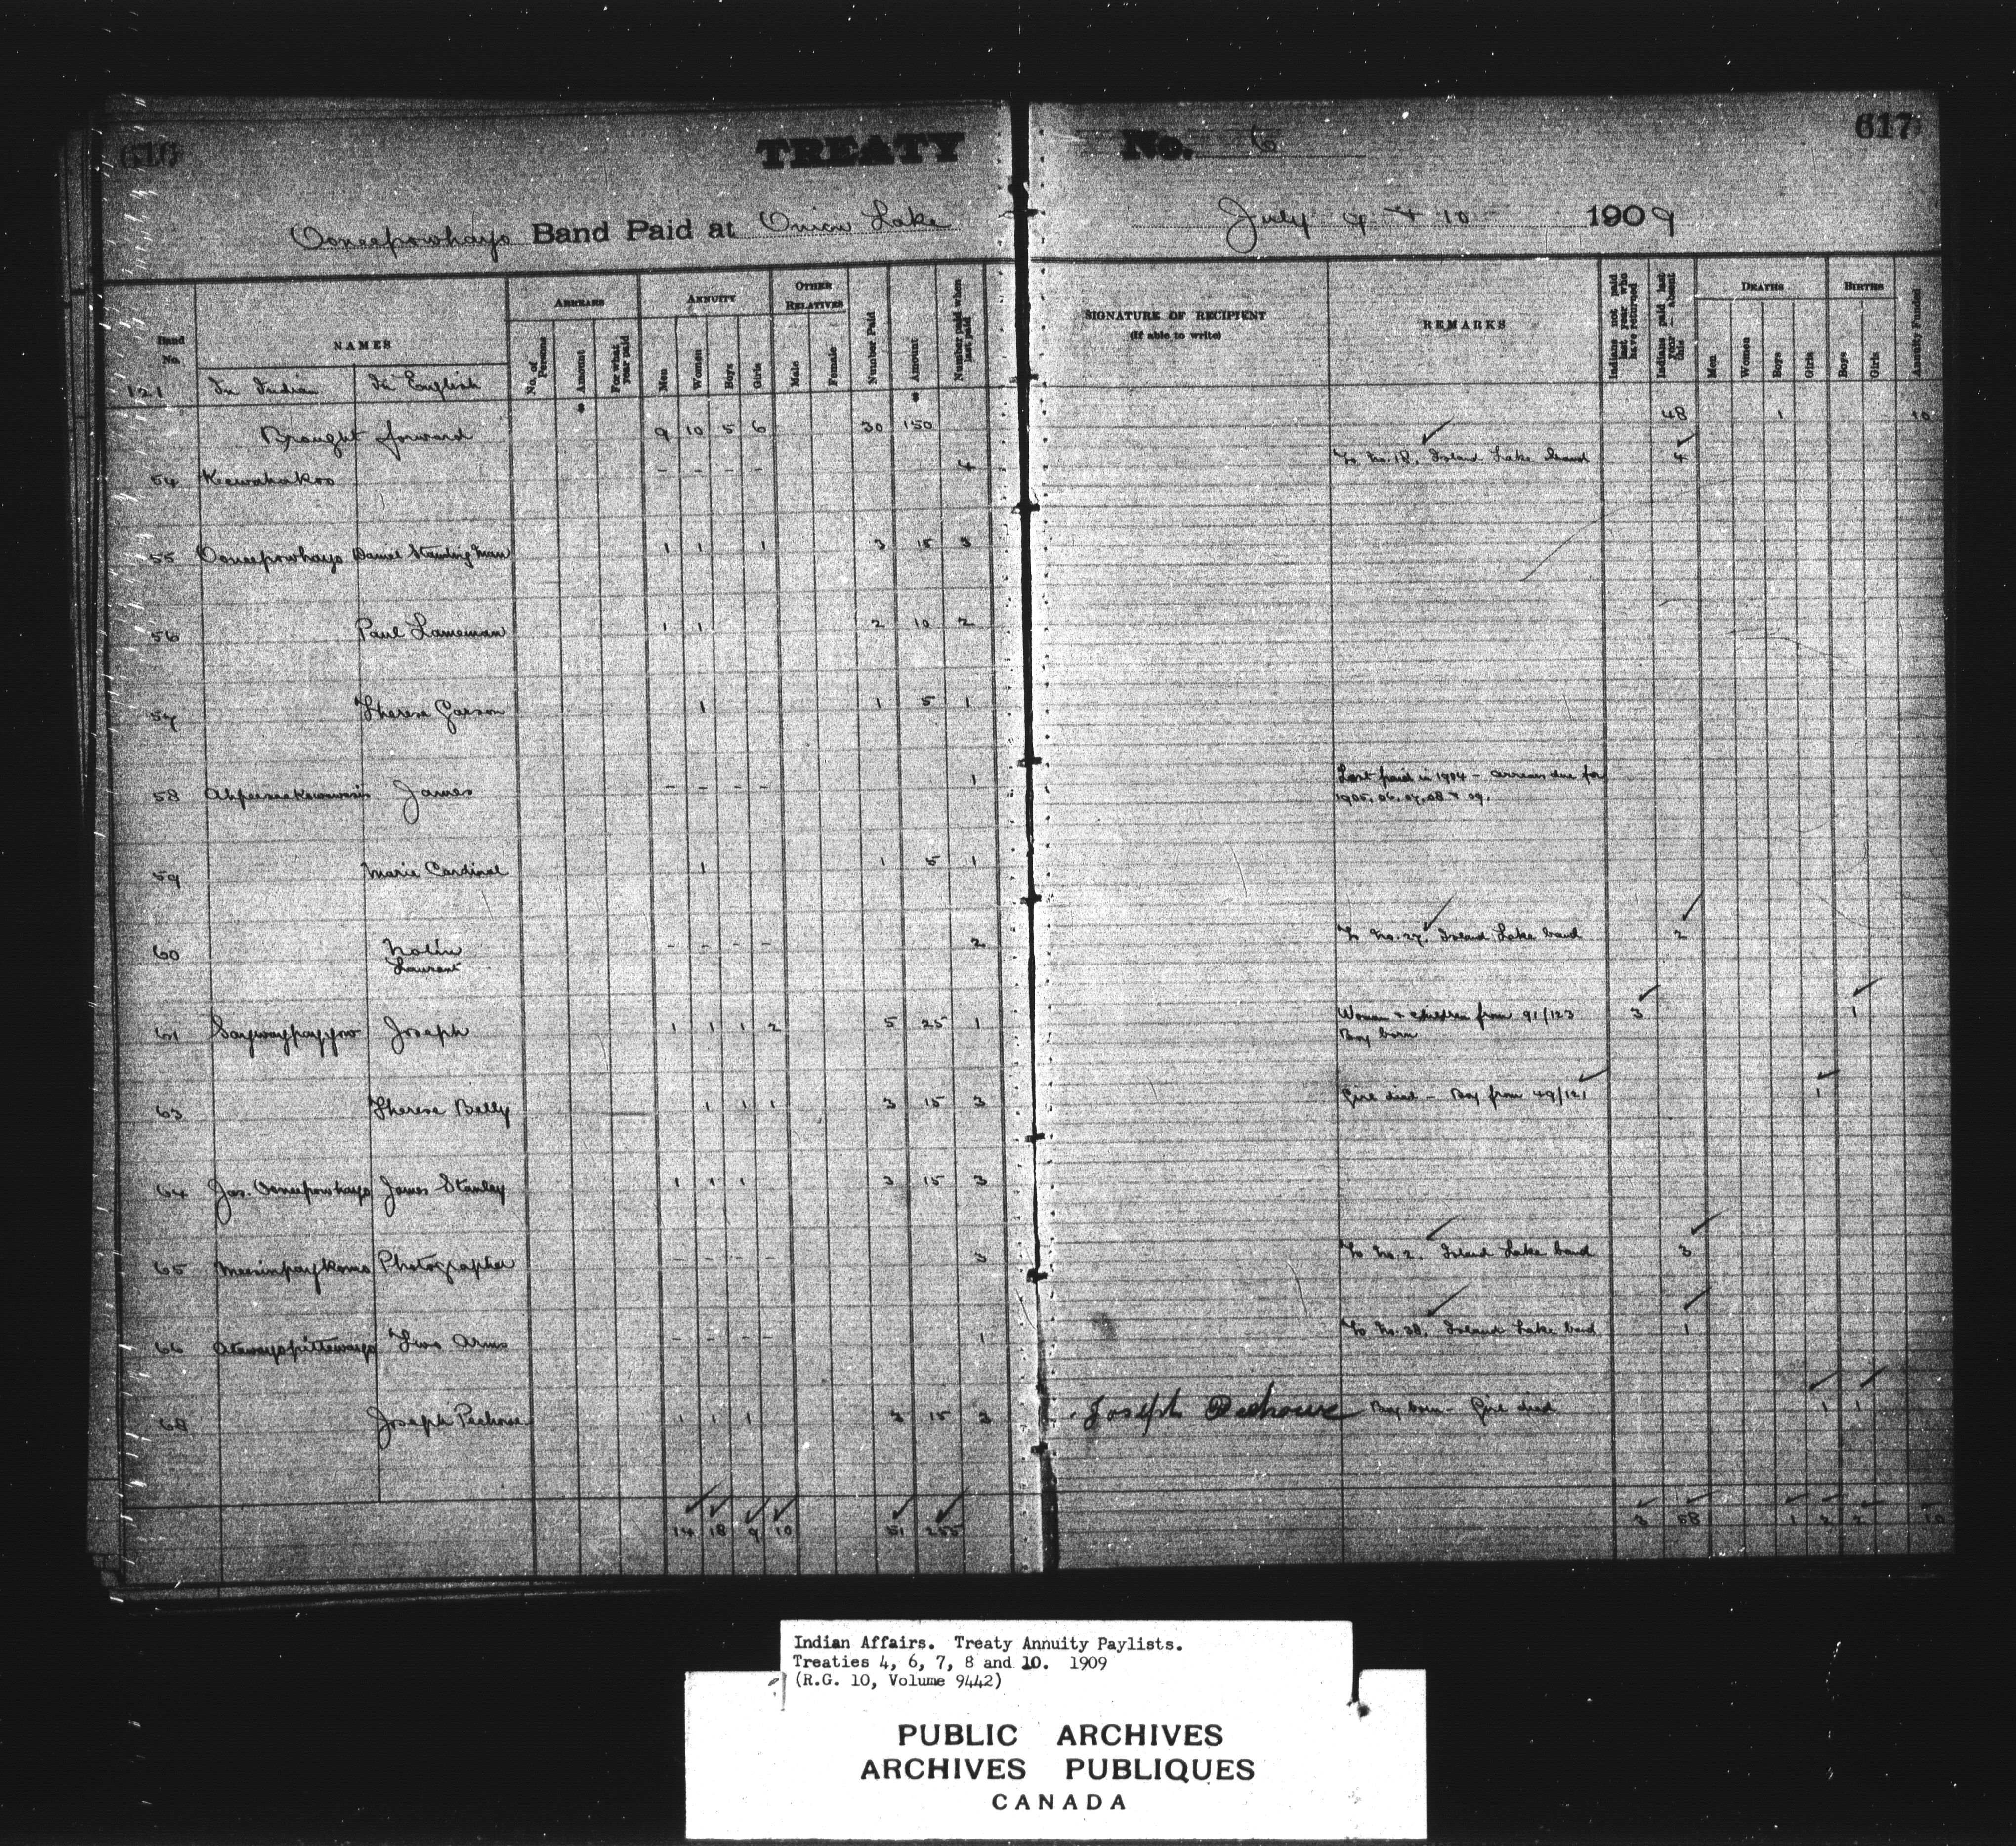 616
TREATY No. 6
617
Ooneepowhayo Band Paid at Onion Lake July 9 & 10 1909
Band No.
NAMES
ARREARS
ANNUITY
OTHER RELATIVES
No. of Persons
Amount
For what year paid
Men
Women
Boys
Girls
Male
Female
Number Paid
Amount
Number paid when last paid
SIGNATURE OF RECIPIENT
(If able to write)
REMARKS
Indians not paid last year who have returned
Indians paid last year - absent this
DEATHS
Men
Women
Boys
Girls
BIRTHS
Boys
Girls
Annuity Funded
121 In Indian In English
Brought forward 9 10 5 6 30 150 48 1 10
54 Keewahakoo - - - - 4 To No. 18, Island Lake band 4
55 Ooneepowhayo Daniel Standing Man 1 1 1 3 15 3
56 Paul Lameman 1 1 2 10 2
57 Therese Garson 1 1 5 1
58 James - - - - 1 Last paid in 1904 - arrears due for
1905, 06, 07, 08 & 09.
59 Marie Cardinal 1 1 5 1
60 Nolin - - - - 2 To No. 27, Island Lake band 2
Laurent
61 Saywaypayyow Joseph 1 1 1 2 5 25 1 Woman & children from 91/123 3 1
Boy born
63 Therese Belly 1 1 1 3 15 3 Girl died - Boy from 49/121 1
64 Jas. Ooneepowhayo James Stanley 1 1 1 3 15 3
65 Meesinpaykomo Photographer - - - - 3 To No. 2, Island Lake band 3
66 Two Arms - - - - 1 To No. 38, Island Lake band 1
68 Joseph Peehouse 1 1 1 3 15 3 Joseph Peehouse Boy born - Girl died 1 1
14 18 9 10 51 255 3 58 1 2 2 10
Indian Affairs. Treaty Annuity Paylists.
Treaties 4, 6, 7, 8 and 10. 1909
(R.G. 10, Volume 9442)
PUBLIC ARCHIVES
ARCHIVES PUBLIQUES
CANADA